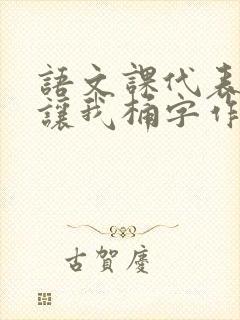 語文課代表
讓我桶字作
古賀慶